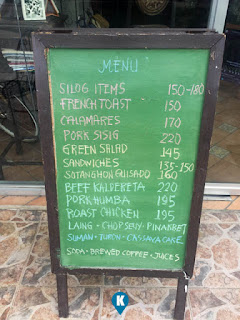 MENU
SILOG ITEMS 150-180
FRENCH TOAST 150
CALAMARES 170
PORK SISIG 220
GREEN SALAD 145
SANDWICHES 135-150
SOTANGHON GUISADO 160
BEEF KALDERETA 220
PORK HUMBA 195
ROAST CHICKEN 195
LAING • CHOPSEUY • PINAKBET
SUMAN • TURON • CASSAVA CAKE
SODA • BREWED COFFEE • JUICES
K